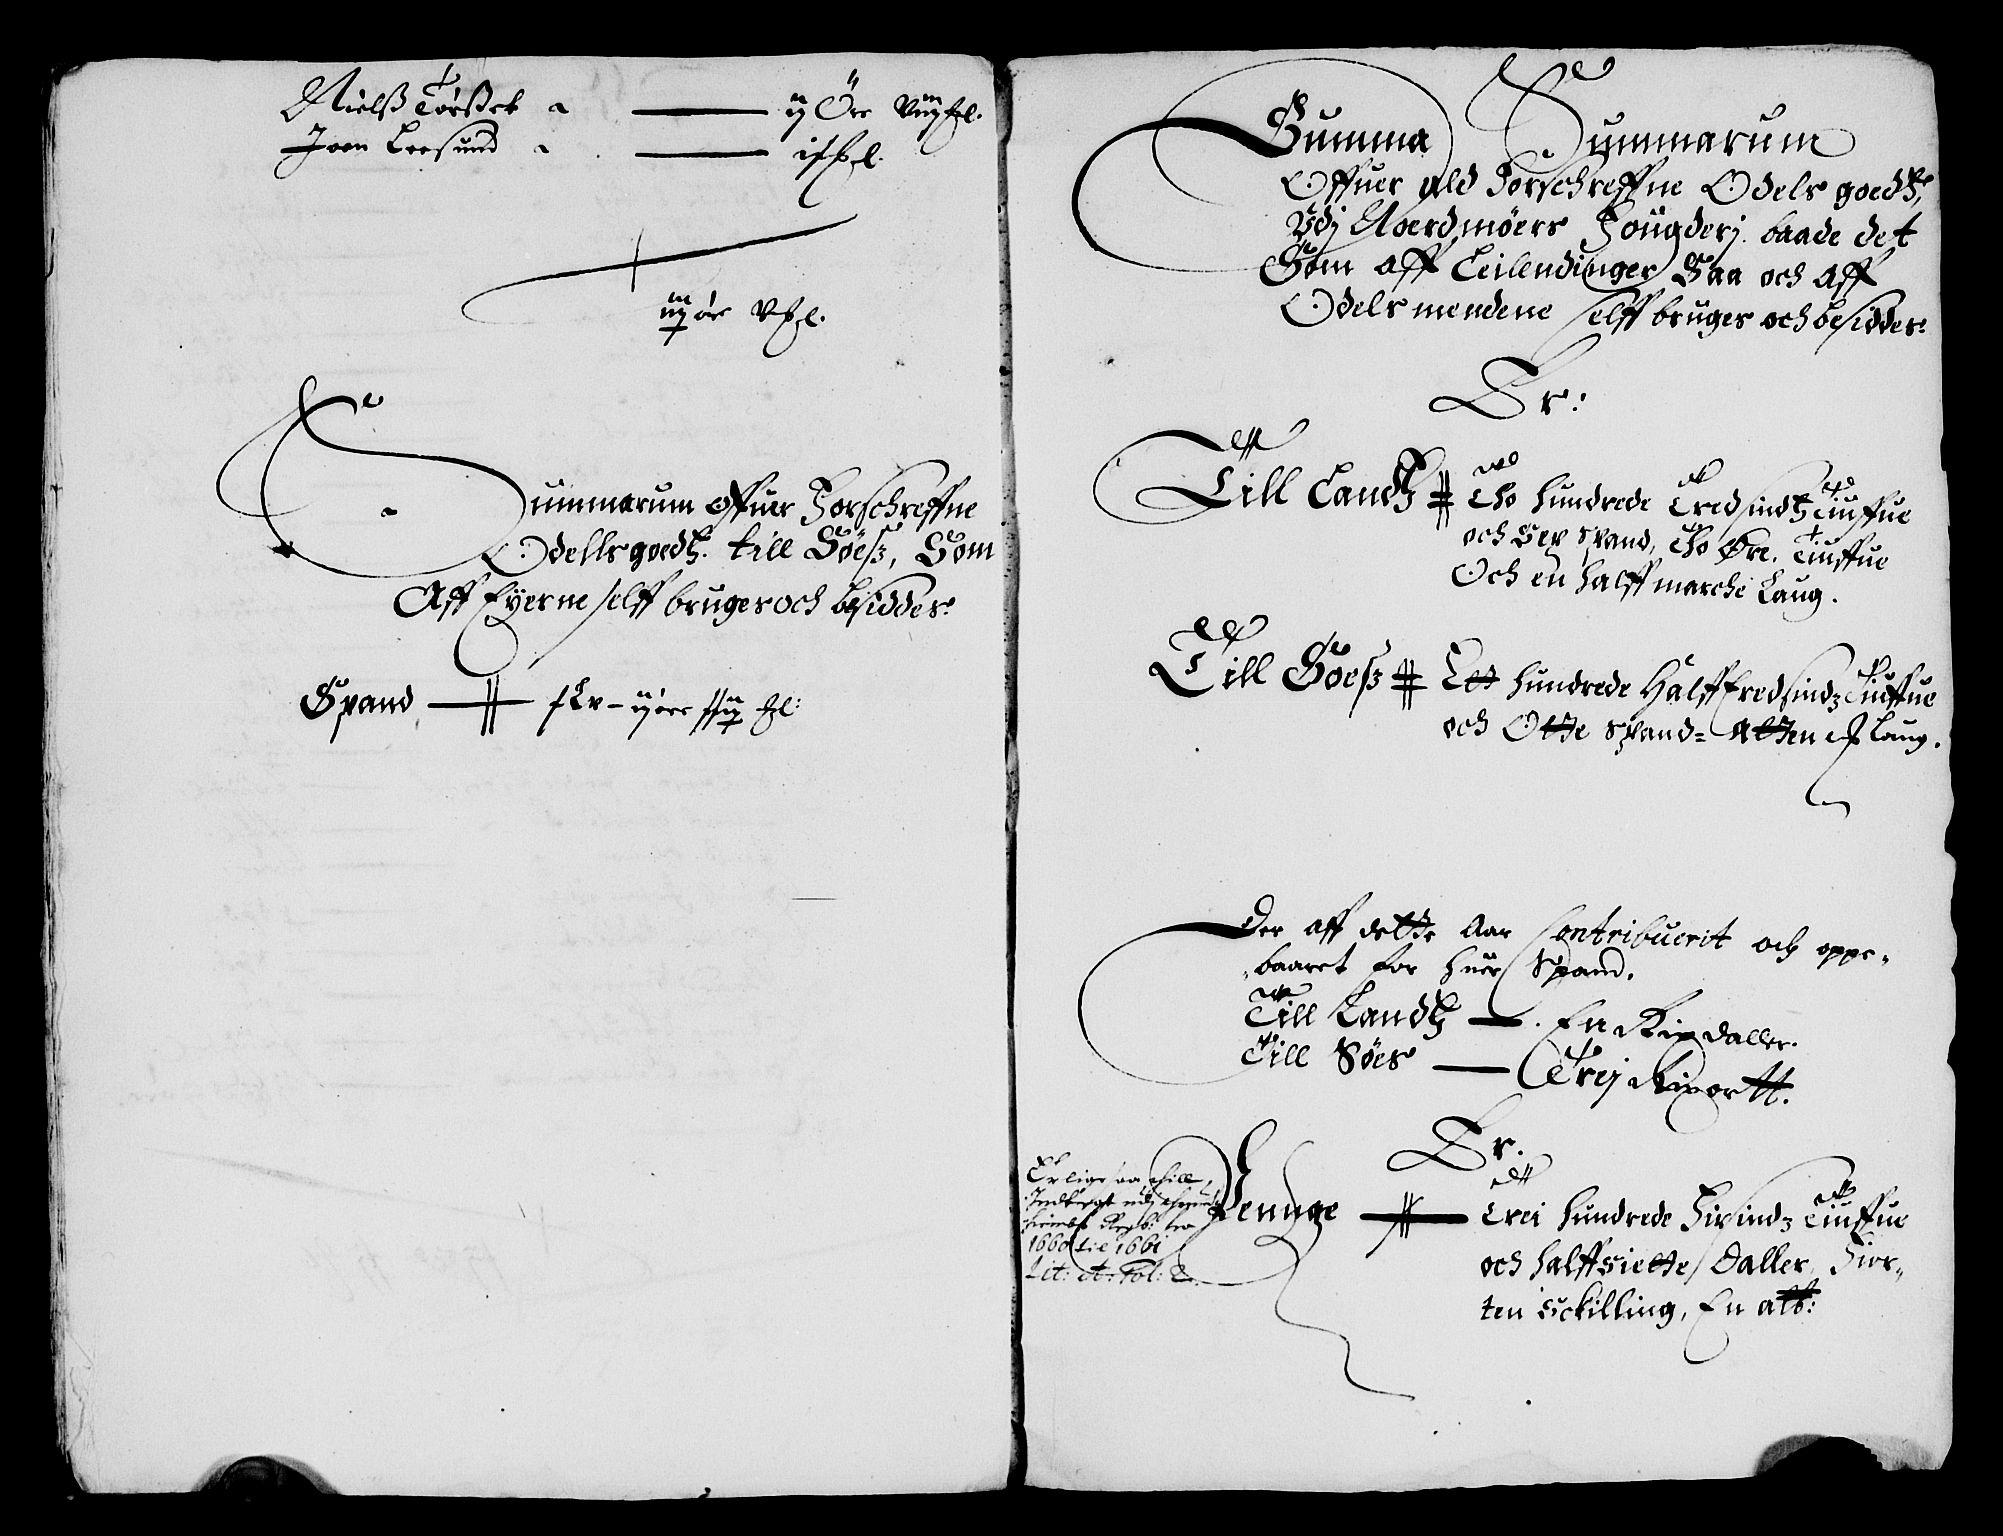 Nielß Torßek a — ij Øre viij ml.
Joen Leesund a — i ß ml.
iiij øre v ml.
Summarum offuer Forschreffne
Odellsgoedtz. till Söeß, Som
Aff Eyerne selff bruger och besidder.
Spand — ij øre
Summa Summarum
Offuer ald Forschreffne Odels goedtz,
Vdj Noerdmöers Fougderj. baade det
Som aff Leilendinger Saa och aff
Odels mendene selff bruger och besidder.
Er:
Till Landtz Tho hundrede Tredsindtz Tiuffue
och Sex Spand, Tho Øre. Tiuffue
Och en halff marche Laug.
Till Soesß Let hundrede Halfftredsindz Tiuffue
och Otte Spand= Atten Laug.
Der aff dette Aar Contribuerit och oppe-
baaret for huer Spand.
Till Landtz — . En Rix daller.
Till Söes — Trej Rix ortt.
Er.
Er ligesaa till
Indtegt udj
Regsk: fra
1660 til 1661
Lit: A: fol: 2.
Pennge Trei hundrede Firsindz Tiuffue
och halffsiette Daller, Fior-
ten Sckilling, En alb: